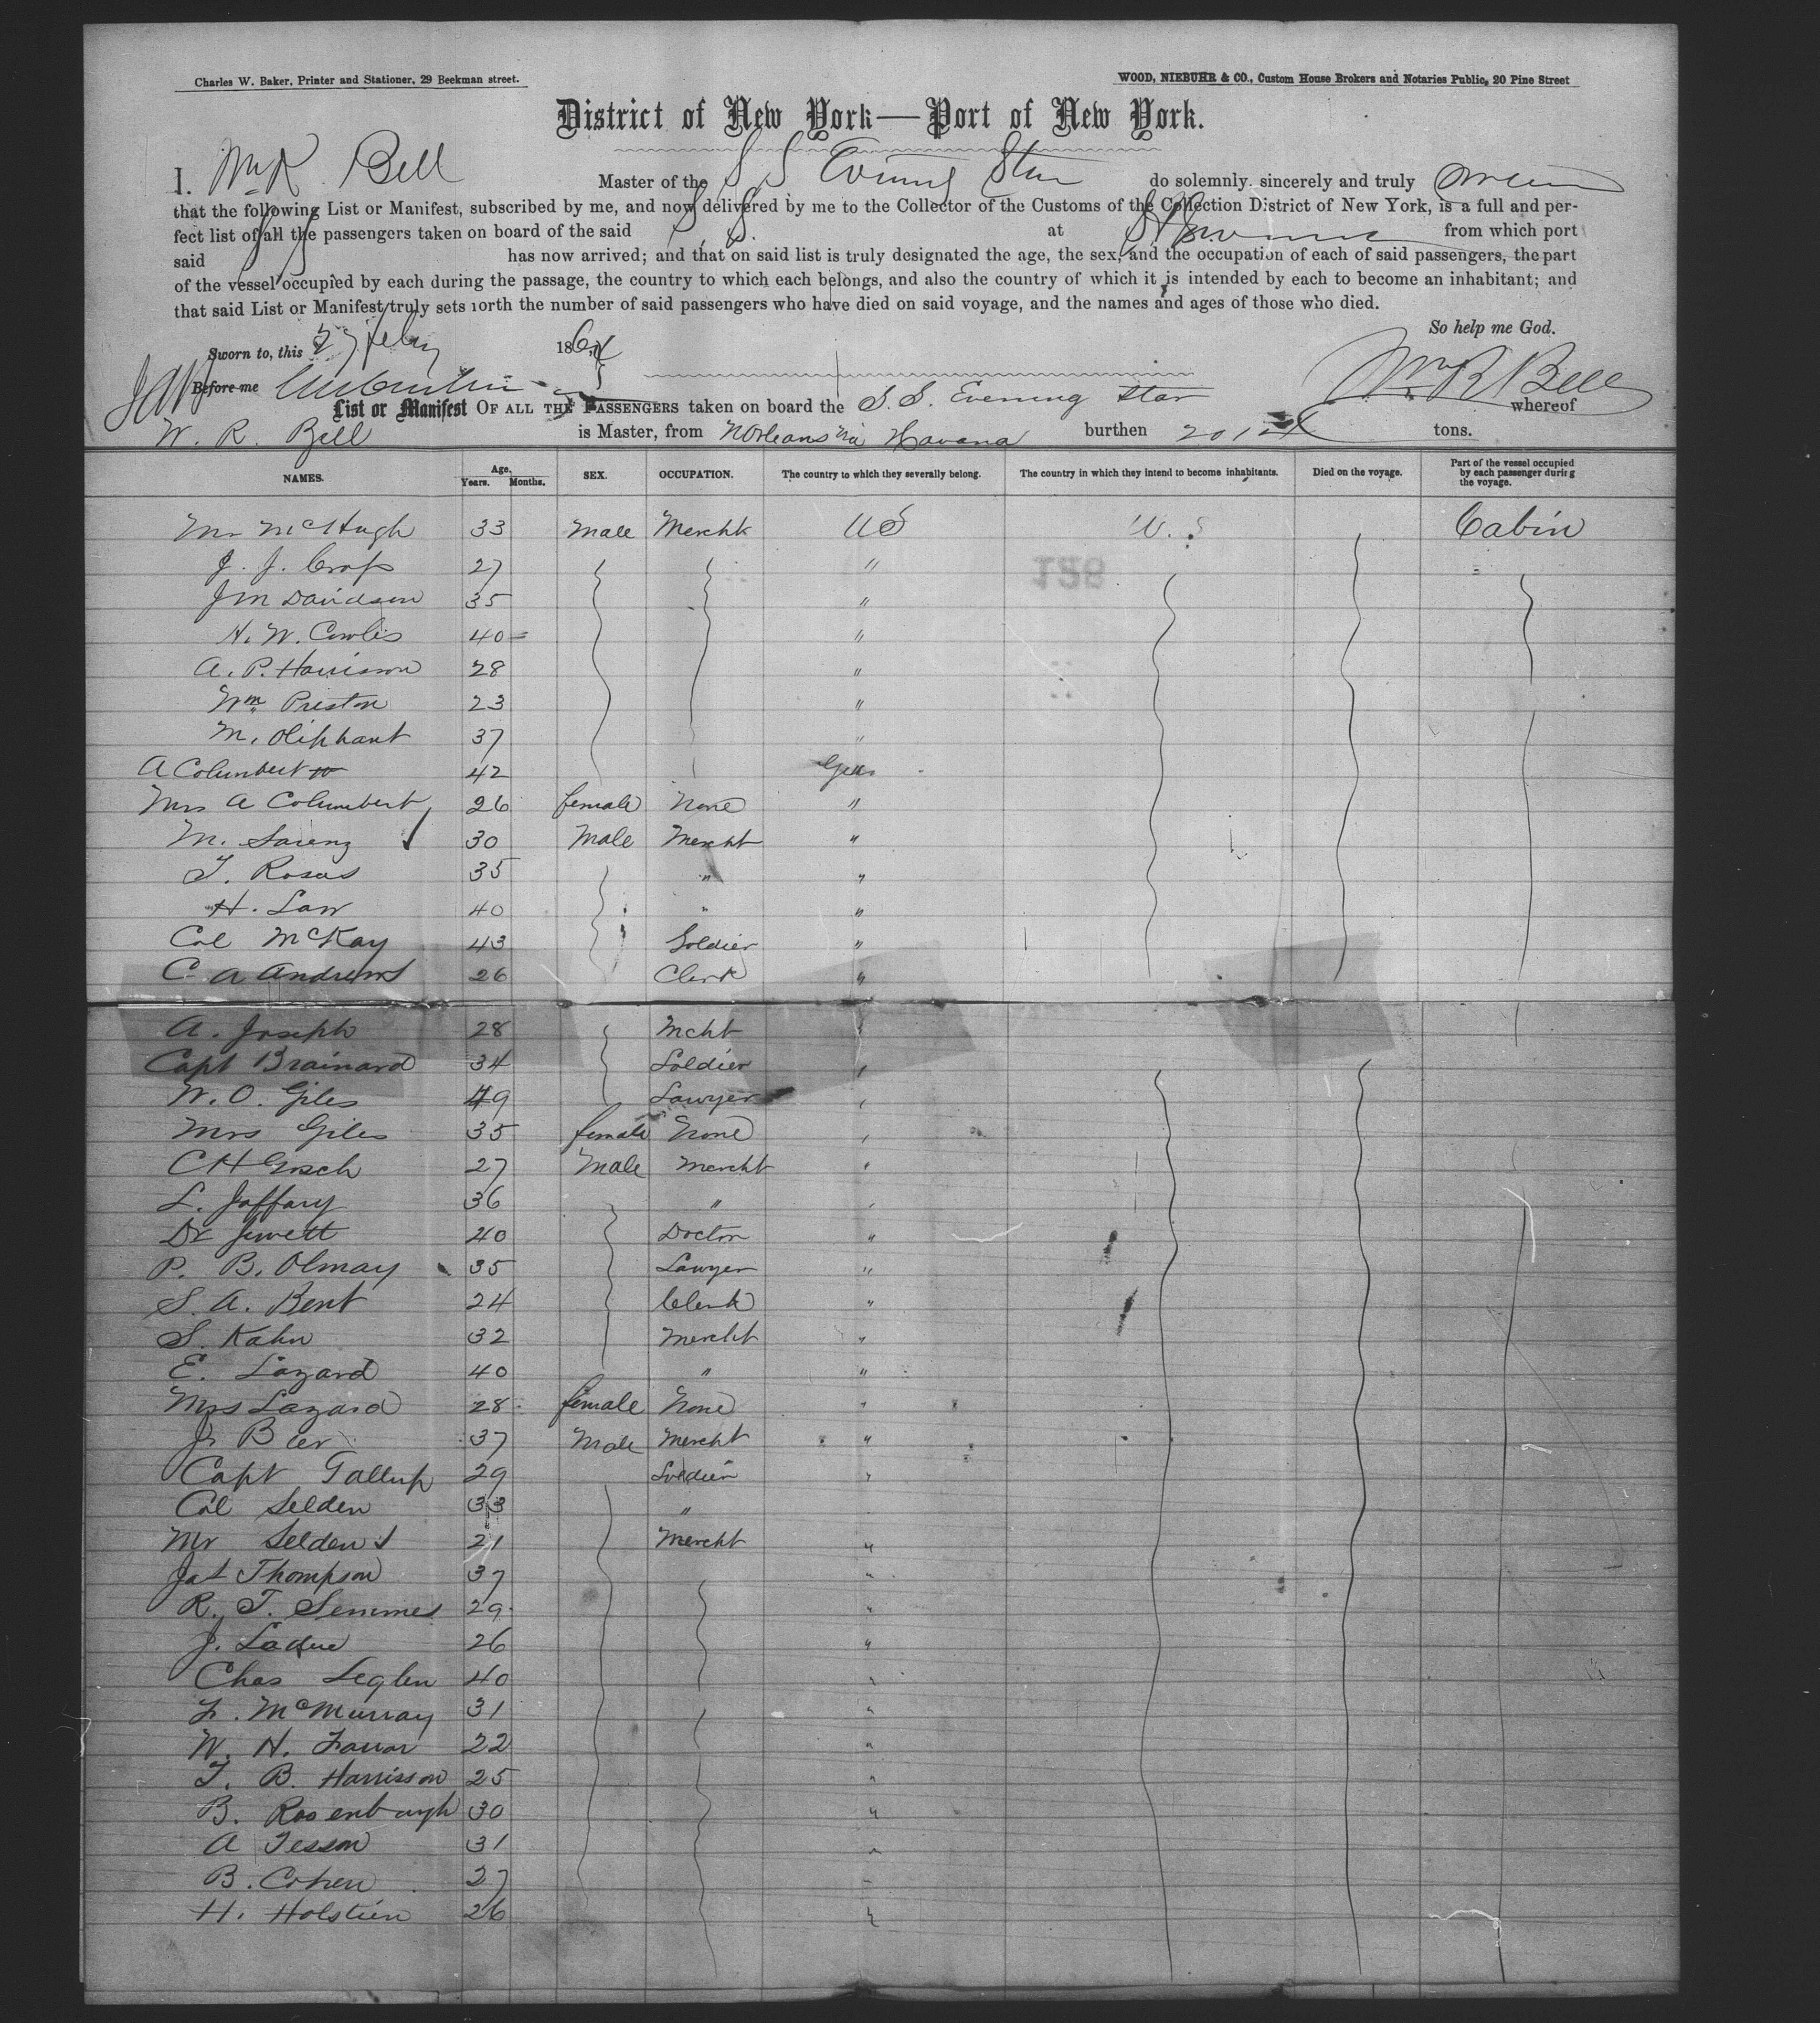 Charles W. Baker, Printer and Stationer, 29 Beekman street. WOOD, NIEBUHR & CO., Custom House Brokers and Notaries Public, 20 Pine Street
District of New York—Port of New York.
I. Wm R Bell Master of the S S Evening Star do solemnly, sincerely and truly swear
that the following List or Manifest, subscribed by me, and now delivered by me to the Collector of the Customs of the Collection District of New York, is a full and per-
fect list of all the passengers taken on board of the said S. S. at from which port
said S S has now arrived; and that on said list is truly designated the age, the sex, and the occupation of each of said passengers, the part
of the vessel occupied by each during the passage, the country to which each belongs, and also the country of which it is intended by each to become an inhabitant; and
that said List or Manifest truly sets forth the number of said passengers who have died on said voyage, and the names and ages of those who died.
So help me God.
Sworn to, this 27 Feby 1864
Before me Wm R Bell
List or Manifest OF ALL THE PASSENGERS taken on board the S. S. Evening Star whereof
W. R. Bell is Master, from NOrleans via Havana burthen 2012 tons.
NAMES. Age. Years. Months. SEX. OCCUPATION. The country to which they severally belong. The country in which they intend to become inhabitants. Died on the voyage. Part of the vessel occupied by each passenger during the voyage.
Mr McHugh 33 Male Mercht US U.S Cabin
J. J. Cross 27 "
J M Davidson 35 "
H. W. Cowles 40 "
A. P. Harrison 28 "
Wm Preston 23 "
M. Oliphant 37 "
A Columbert 42
Mrs A Columbert 26 female None "
M. Lorenz 30 Male Mercht "
T. Rosas 35 " "
H. Law 40 " "
Col McKay 43 Soldier "
C A Andrews 26 Clerk "
A. Joseph 28 Mcht
Capt Brainard 34 Soldier
W. O. Giles 49 Lawyer
Mrs Giles 35 female None
C H Gosch 27 Male Mercht
L. Jaffary 36 "
Dr Jewett 40 Doctor "
P. B. Olmay 35 Lawyer "
S. A. Bent 24 Clerk "
S. Kahn 32 Mercht "
E. Lazard 40 " "
Mrs Lazard 28 female None "
J. Bier 37 Male Mercht "
Capt Gallup 29 Soldier "
Col Selden 33 "
Mr Selden 21 Mercht "
Jas Thompson 37 "
R. T. Semmes 29 "
J. Ladue 26 "
Chas Legler 40 "
L. McMurray 31 "
W. H. Farrar 22 "
T. B. Harrisson 25 "
B. Rosenbaugh 30 "
A Tesson 31 "
B. Cohen 27
H. Holstien 26 "